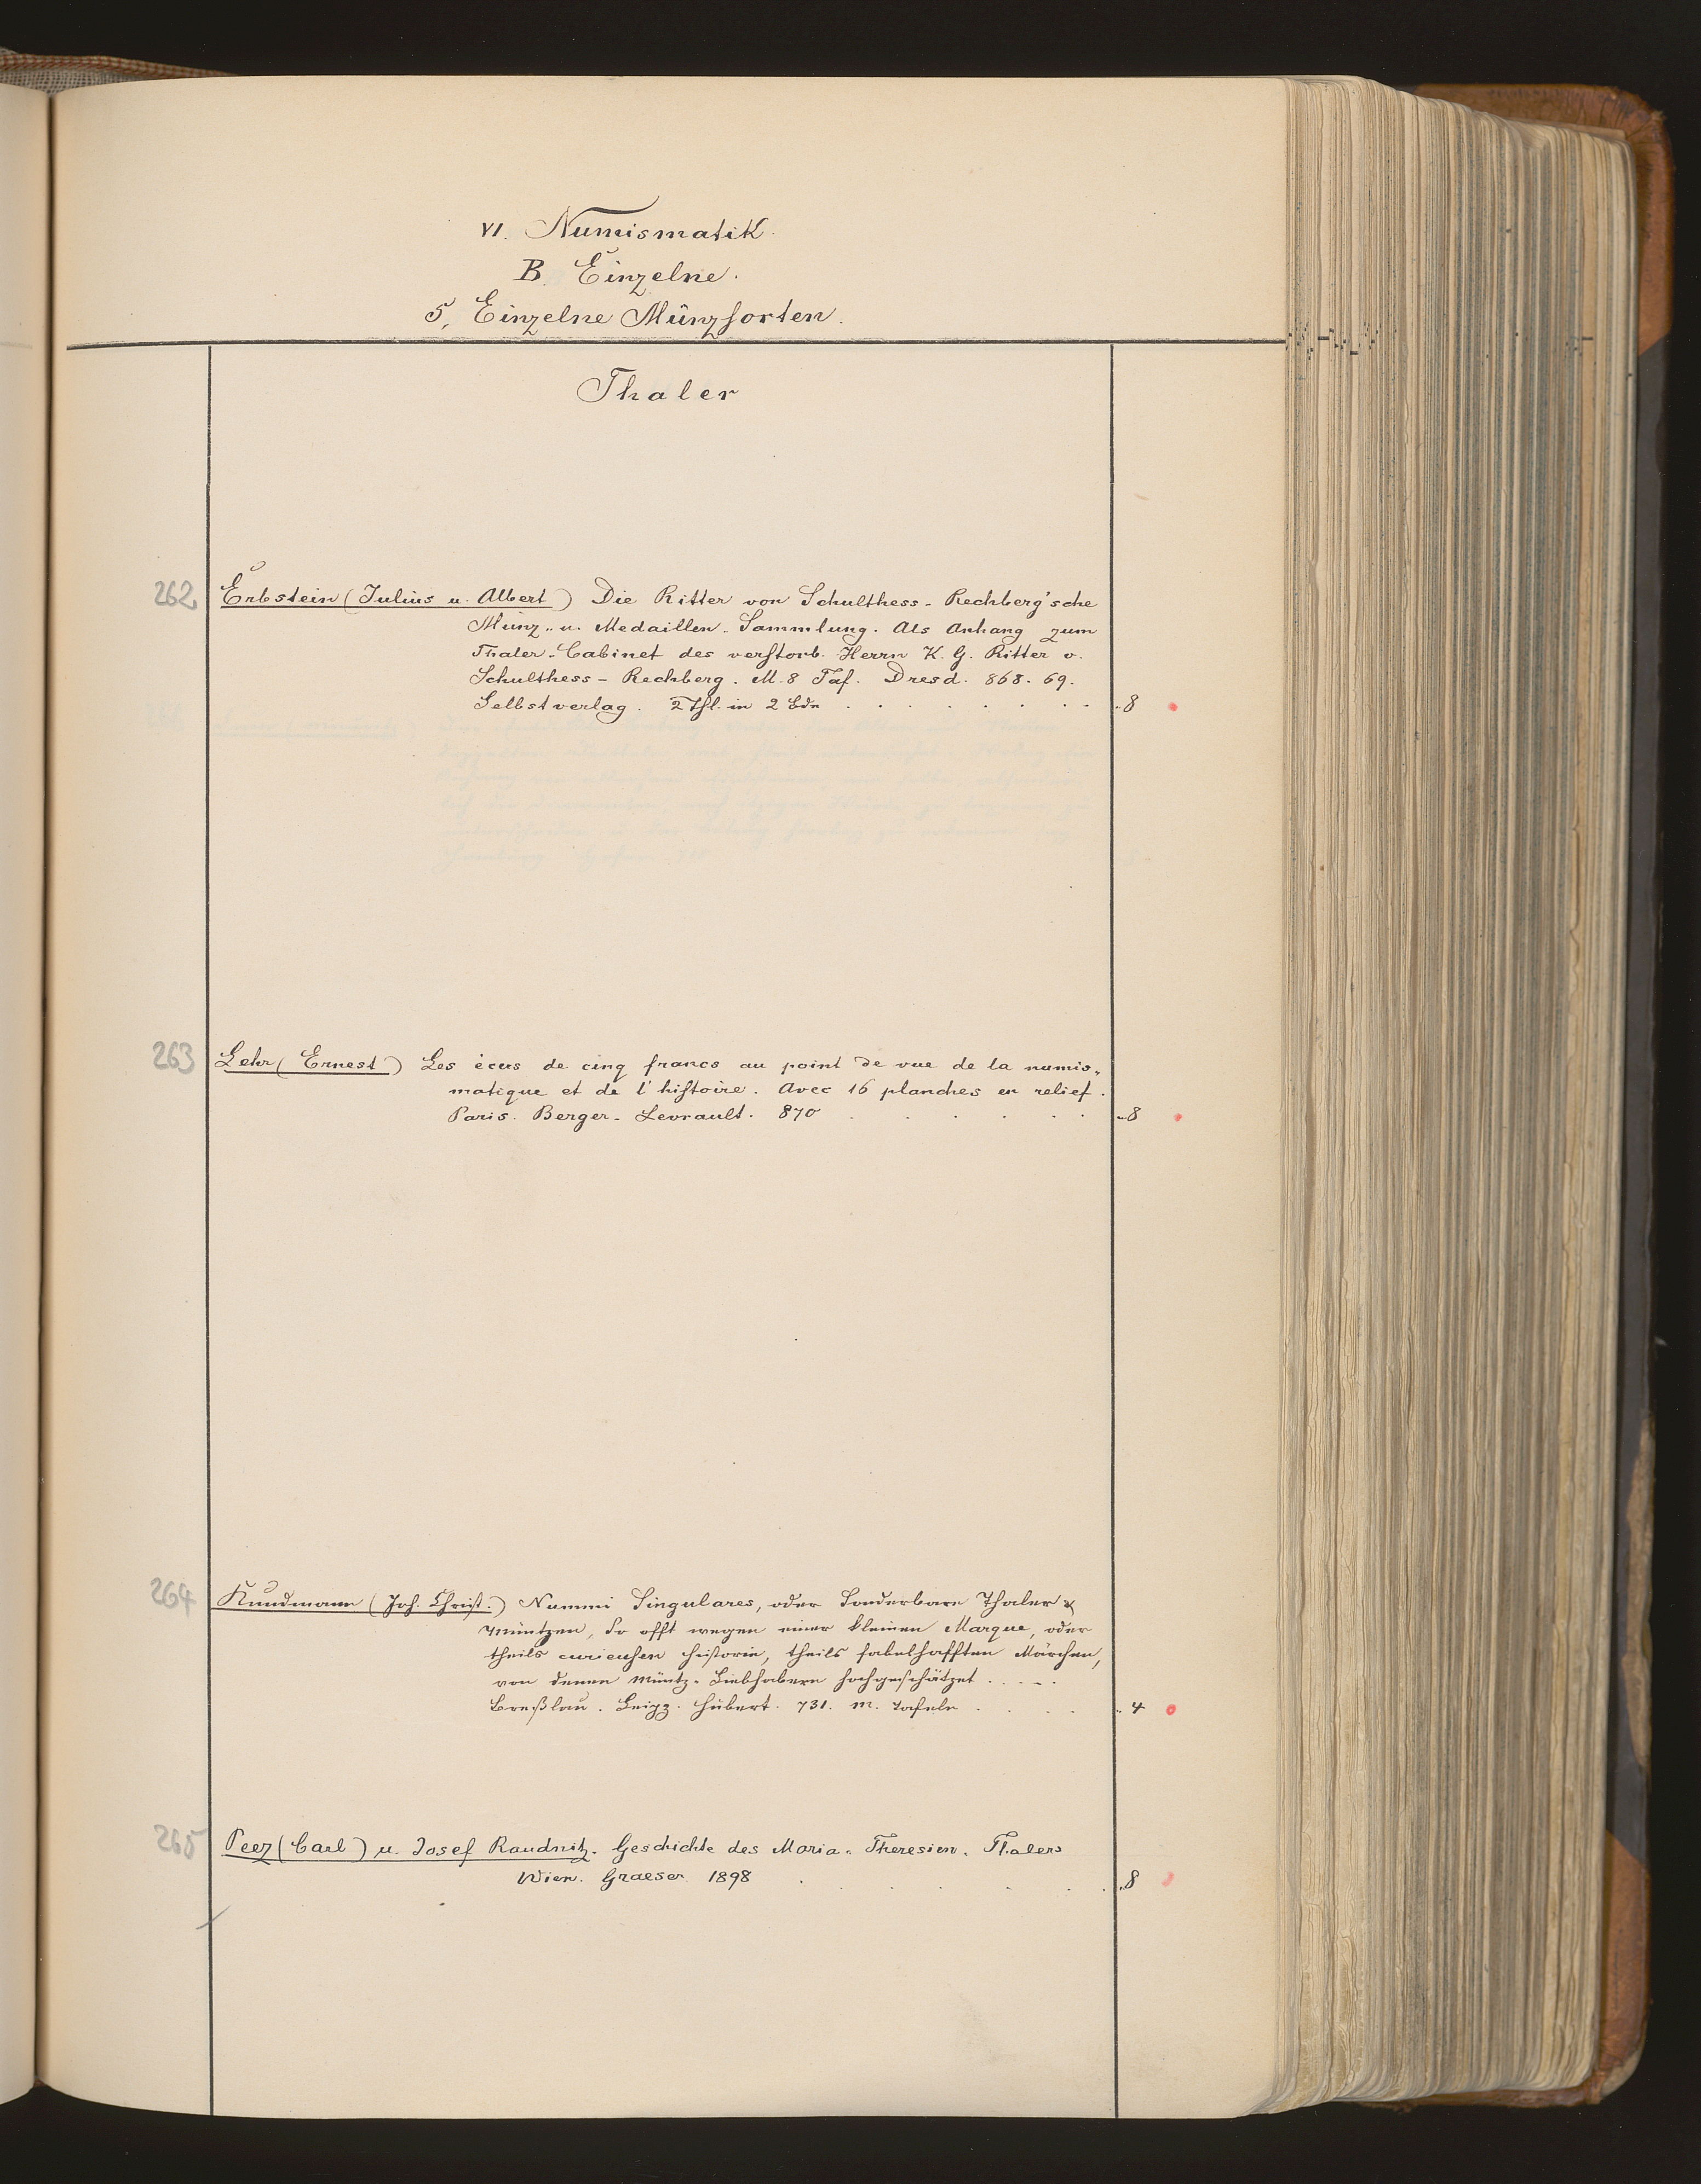 VI. Numismatik.
B. Einzelne.
5. Einzelne Münzsorten.
Thaler
262 Erbstein (Julius u. Albert) Die Ritter von Schulthess-Rechberg'sche
Münz- u. Medaillen-Sammlung. Als Anhang zum
Thaler-Cabinet des verstorb. Herrn K. G. Ritter v.
Schulthess-Rechberg. M. 8 Taf. Dresd. 868. 69.
Selbstverlag. 2 Thl. in 2 Bdn . . . . . . . . 8
263 Lehr (Ernest) Les écus de cinq francs au point de vue de la numis-
matique et de l'histoire. Avec 16 planches en relief.
Paris. Berger-Levrault. 870 . . . . . . 8
264 Kundmann (Joh. Christ.) Nummi Singulares, oder Sonderbare Thaler &
Müntzen, So offt wegen einer kleinen Marque, oder
theils curieusen Historie, theils fabelhafften Märchen,
von denen Müntz-Liebhabern hochgeschätzet . . . . .
Breßlau. Leipz. Hubert. 731. m. Tafeln . . . . 4
265 Peez (Carl) u. Josef Raudnitz. Geschichte des Maria-Theresien-Thalers
Wien. Graeser 1898 . . . . . . 8